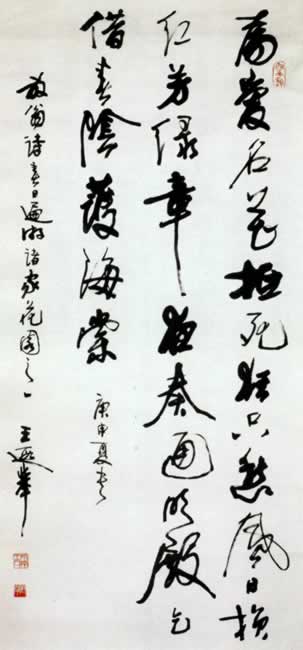 為愛名花抵死狂只愁風日損
紅芳緑章夜奏通明殿乞
借春陰護海棠 庚申夏書
放翁詩春日遍游諸家花園之一 王遐舉